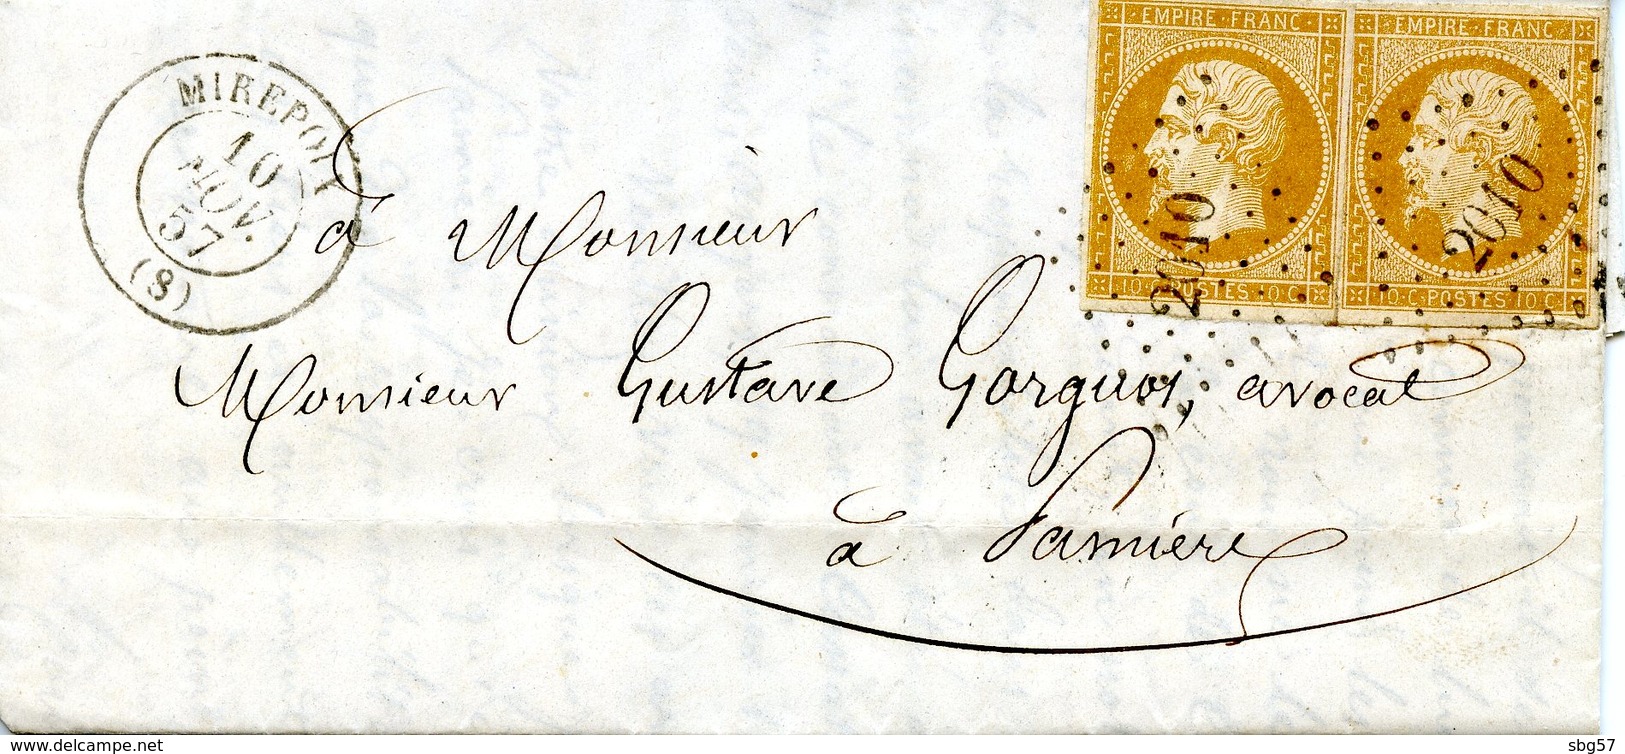 MIREPOIX
10
NOV.
57
(8)
EMPIRE FRANC
10 C. POSTES 10 C.
2010
EMPIRE FRANC
10 C. POSTES 10 C.
2010
à Monsieur
Monsieur Gustave Gorguos, avocat
à Pamiers
www.delcampe.net
sbg57